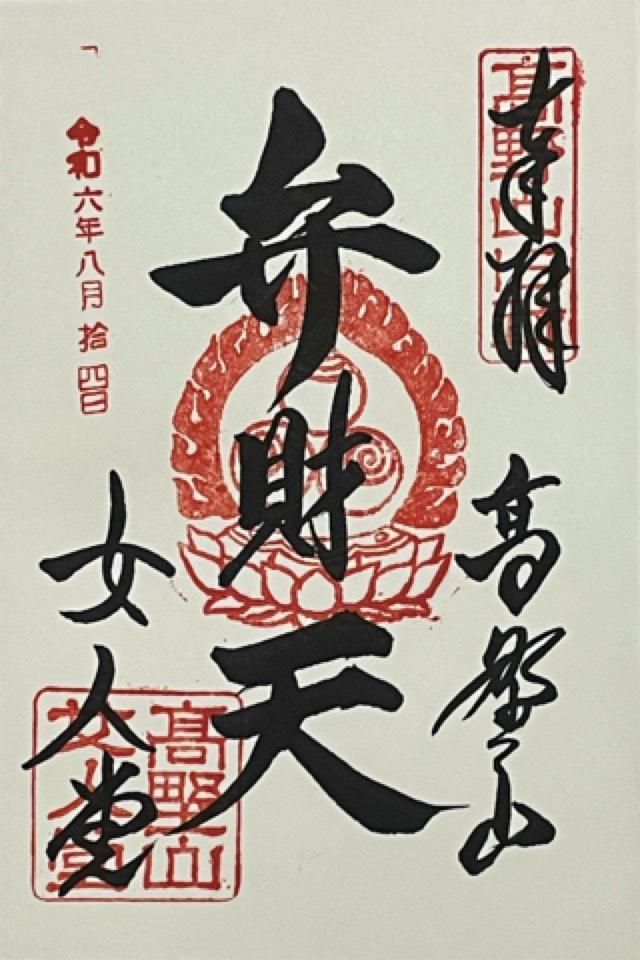 奉拝
高野山
弁財天
女人堂
令和六年八月拾四日
高野山
女人堂